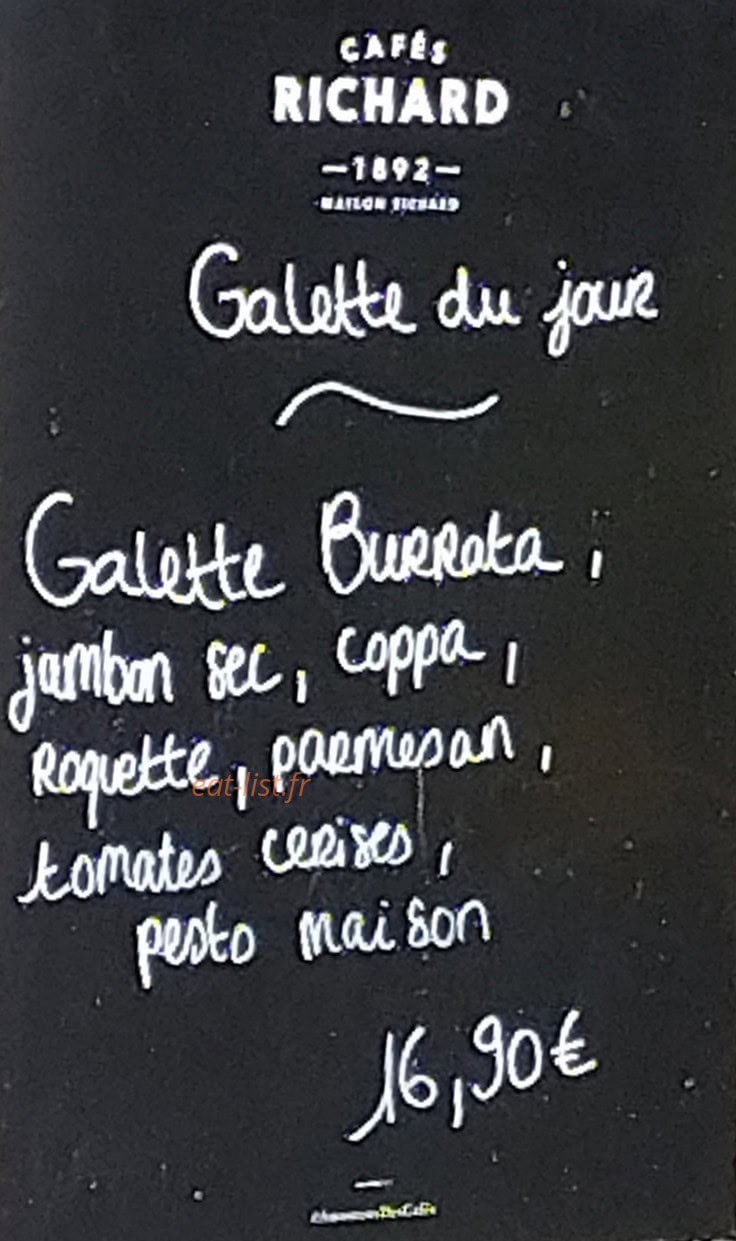 CAFÉS
RICHARD
—1892—
MAISON RICHARD
Galette du jour
Galette Burrata,
jambon sec, coppa,
roquette, parmesan,
eat-list.fr
tomates cerises,
pesto maison
16,90€